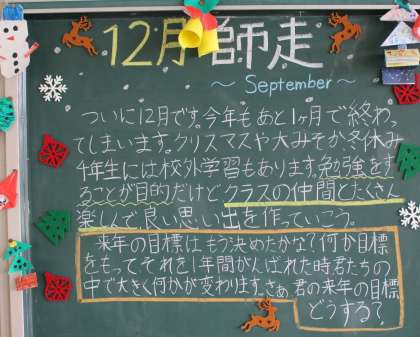 12月 師走
～ September ～
ついに12月です。今年もあと1ヶ月で終わっ
てしまいます。クリスマスや大みそか冬休み
4年生には校外学習もあります。勉強をす
ることが目的だけどクラスの仲間とたくさん
楽しんで、良い思い出を作っていこう。
来年の目標はもう決めたかな？何か目標
をもってそれを1年間がんばれた時君たちの
中で大きく何かが変わります。さぁ、君の来年の目標
どうする？